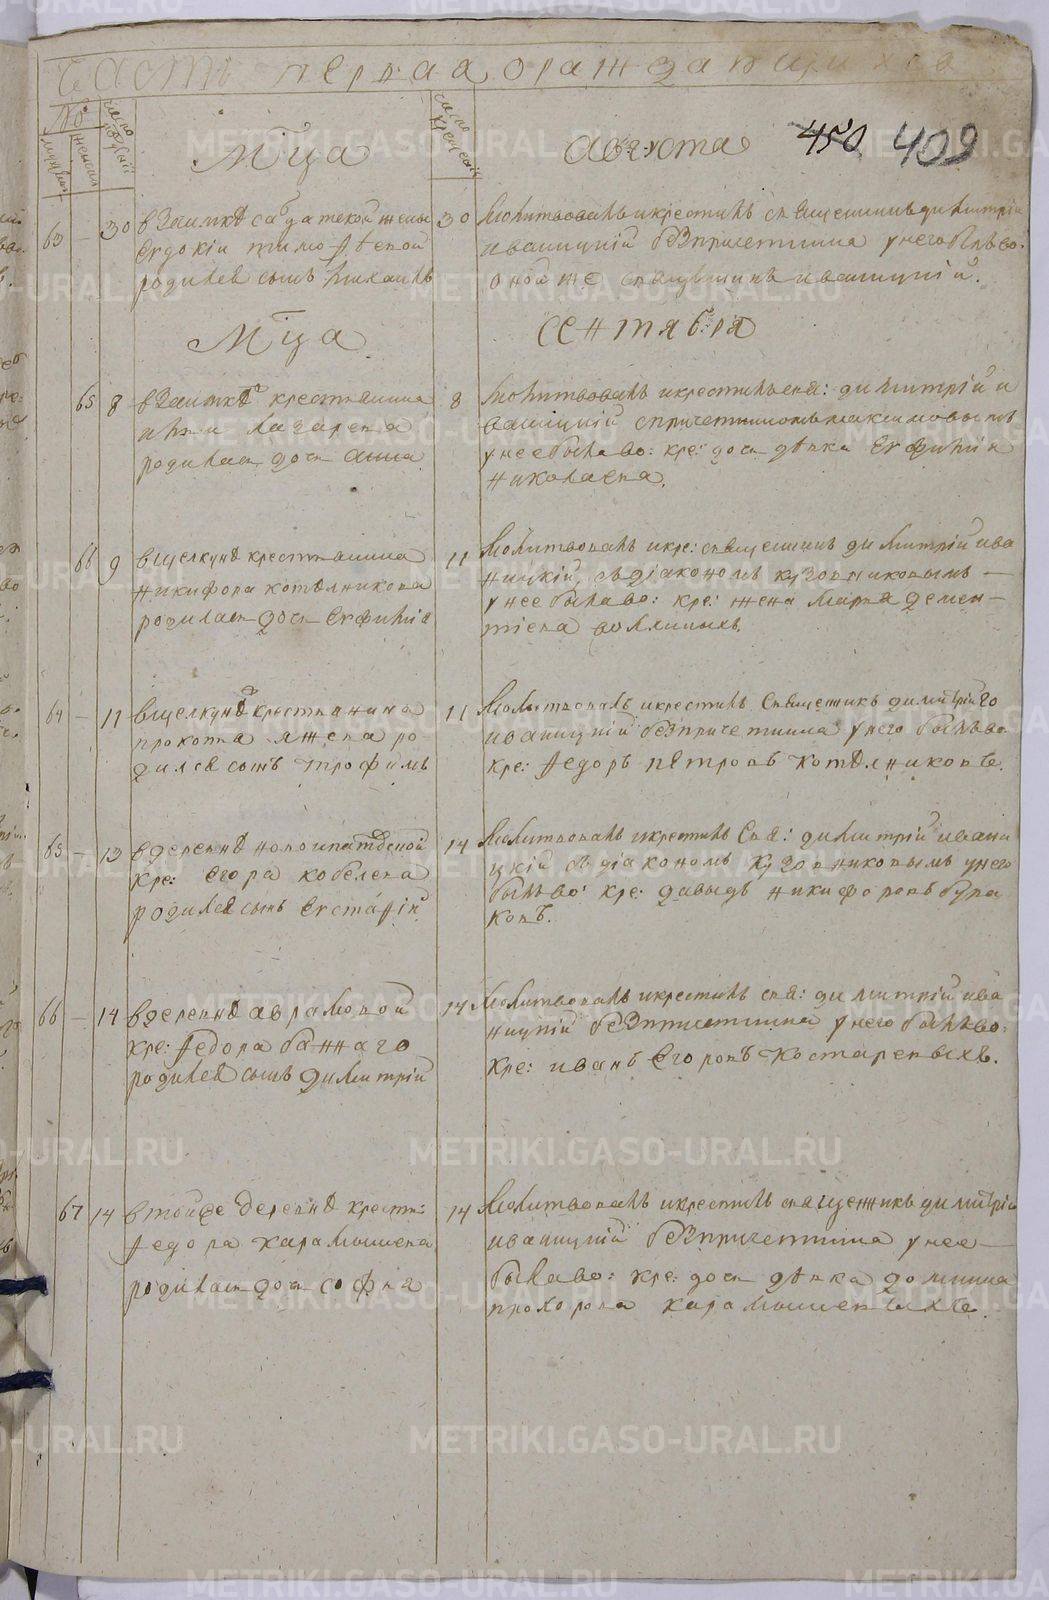 Часть первая о раждающихся
№
число рождений
число крещений
мужеск
женска
Мца
Августа
450 409
63 — 30 в Заимкѣ салдатской жены
Евдокiи Тимофѣевой
родился сынъ Михаилъ
30 Молитвовалъ и крестилъ священникъ Димитрiй
Иваницкiй без причетника у него былъ во:
оной же священникъ Иваницкiй.
Мца
Сентября
65 8 в Заимкѣ крестьянина
Лазарева
родилась дочь Анна
8 Молитвовалъ и крестилъ свя: Димитрiй И
ваницкiй с причетникомъ Максимовымъ
у нее была во: кре: дочь дѣвка Евфимiя
Николаева.
66 9 в Щелкунѣ крестьянина
Никифора Котелникова
родилась дочь Евфимiя
11 Молитвовалъ и кре: священникъ Димитрiй Ива
ницкiй, съ дiакономъ Кузовниковымъ —
у нее была во: кре: жена Марѳа Демен—
тiева
64 — 11 в Щелкунѣ крестьянина
Прокопiя жена ро
дился сынъ Трофимъ
11 Молитвовалъ и крестилъ Священикъ Димитрiй
Иваницкiй без причетника у него былъ во
кре: Ѳедоръ Петровъ Котелниковъ.
65 — 13 в деревнѣ Новоипатовской
кре: Егора Кобелева
родился сынъ Евстафiй
14 Молитвовалъ и крестилъ Свя: Димитрiй Ивани
цкiй съ дiакономъ Кузовниковымъ у него
былъ во: кре: Давыдъ Никифоровъ Бура
ковъ.
66 — 14 в деревнѣ Аврамовой
кре: Ѳедора Баннаго
родился сынъ Димитрiй
14 Молитвовалъ и крестилъ свя: Димитрiй Ива
ницкiй без причетника у него былъ во:
кре: Иванъ Егоровъ Костаревыхъ.
67 14 в той же деревнѣ кресть:
Ѳедора Карамышева
родилась дочь Софiя
14 Молитвовалъ и крестилъ священникъ Димитрiй
Иваницкiй без причетника у нее —
была во: кре: дочь дѣвка Домника
Прохорова Карамышевыхъ.
METRIKI.GASO-URAL.RU